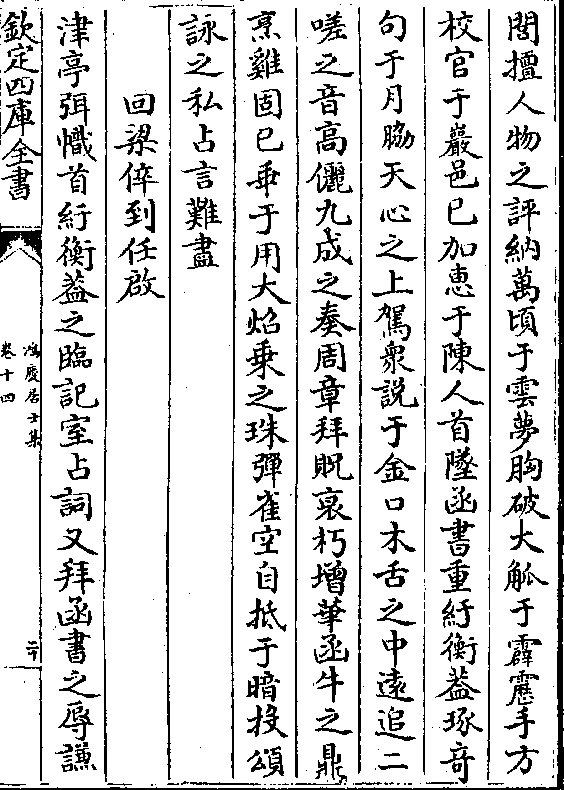 閤擅人物之評納萬頃于雲夢胸破大觚于霹靂手方
校官于巖邑已加惠于陳人首墜函書重紆衡蓋琢竒
句于月脇天心之上駕衆説于金口木舌之中逺追二
嗟之音高儷九成之奏周章拜貺衰朽增華函牛之鼎
烹雞固已乖于用大炤乗之珠彈雀空自抵于暗投頌
詠之私占言難盡
回梁倅到任啟
津亭弭幟首紆衡葢之臨記室占詞又拜函書之辱謙
欽定四庫全書
鴻慶居士集
卷十四
二十